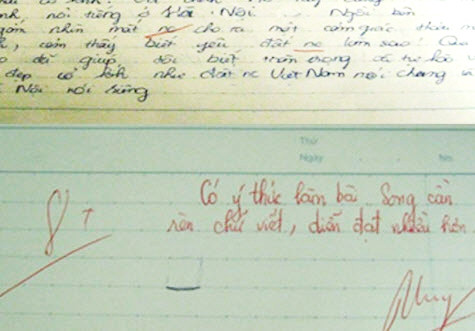 nh, nổi tiếng ở Hà Nội . Ngôi bên
ngắm nhìn mất nc cho ra một cảm giác
, cảm thấy biết yêu đất nc làm sao. Qua
giúp tôi biết trân trọng và tự hào
đẹp có ích như đất nc Việt Nam nói chung và
Nội nói riêng
Thứ
Ngày No.
8+
Có ý thức làm bài. Song cần
rèn chữ viết, diễn đạt nhiều hơn